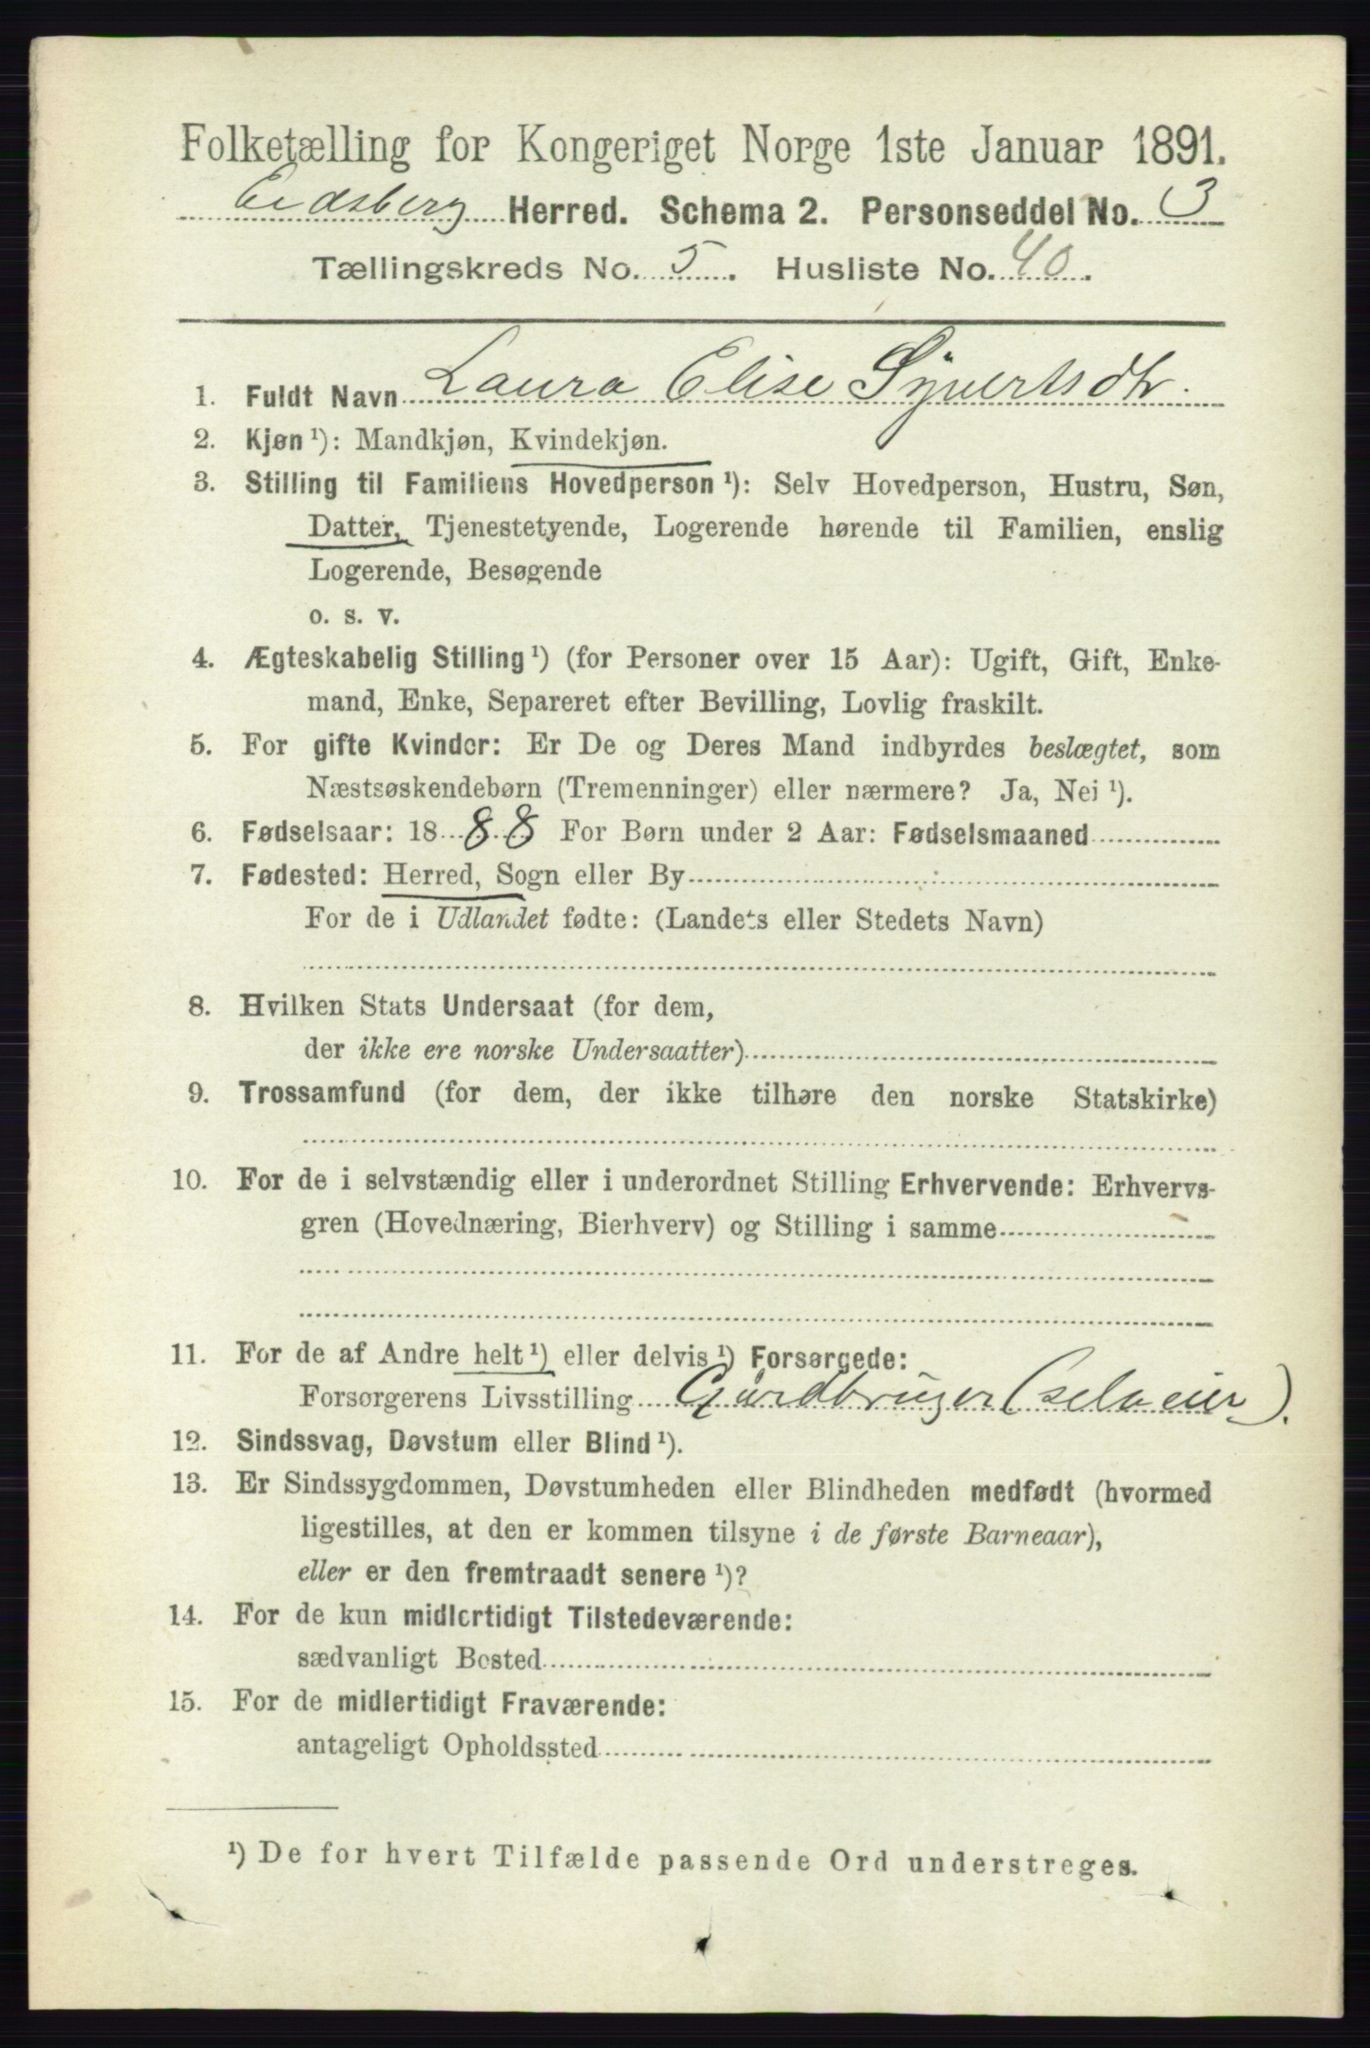 Folketælling for Kongeriget Norge 1ste Januar 1891.
Eidsberg Herred. Schema 2. Personseddel No. 3
Tællingskreds No. 5. Husliste No. 40.
1. Fuldt Navn Laura Elise Syvertsdtr.
2. Kjøn ¹): Mandkjøn, Kvindekjøn.
3. Stilling til Familiens Hovedperson ¹): Selv Hovedperson, Hustru, Søn,
Datter, Tjenestetyende, Logerende hørende til Familien, enslig
Logerende, Besøgende
o. s. v.
4. Ægteskabelig Stilling ¹) (for Personer over 15 Aar): Ugift, Gift, Enke-
mand, Enke, Separeret efter Bevilling, Lovlig fraskilt.
5. For gifte Kvinder: Er De og Deres Mand indbyrdes beslægtet, som
Næstsøskendebørn (Tremenninger) eller nærmere? Ja, Nei ¹).
6. Fødselsaar: 1888 For Børn under 2 Aar: Fødselsmaaned
7. Fødested: Herred, Sogn eller By
For de i Udlandet fødte: (Landets eller Stedets Navn)
8. Hvilken Stats Undersaat (for dem,
der ikke ere norske Undersaatter)
9. Trossamfund (for dem, der ikke tilhøre den norske Statskirke)
10. For de i selvstændig eller i underordnet Stilling Erhvervende: Erhvervs-
gren (Hovednæring, Bierhverv) og Stilling i samme
11. For de af Andre helt ¹) eller delvis ¹) Forsørgede:
Forsørgerens Livsstilling Gaardbruger (selveier).
12. Sindssvag, Døvstum eller Blind ¹).
13. Er Sindssygdommen, Døvstumheden eller Blindheden medfødt (hvormed
ligestilles, at den er kommen tilsyne i de første Barneaar),
eller er den fremtraadt senere ¹)?
14. For de kun midlertidigt Tilstedeværende:
sædvanligt Bosted
15. For de midlertidigt Fraværende:
antageligt Opholdssted
¹) De for hvert Tilfælde passende Ord understreges.